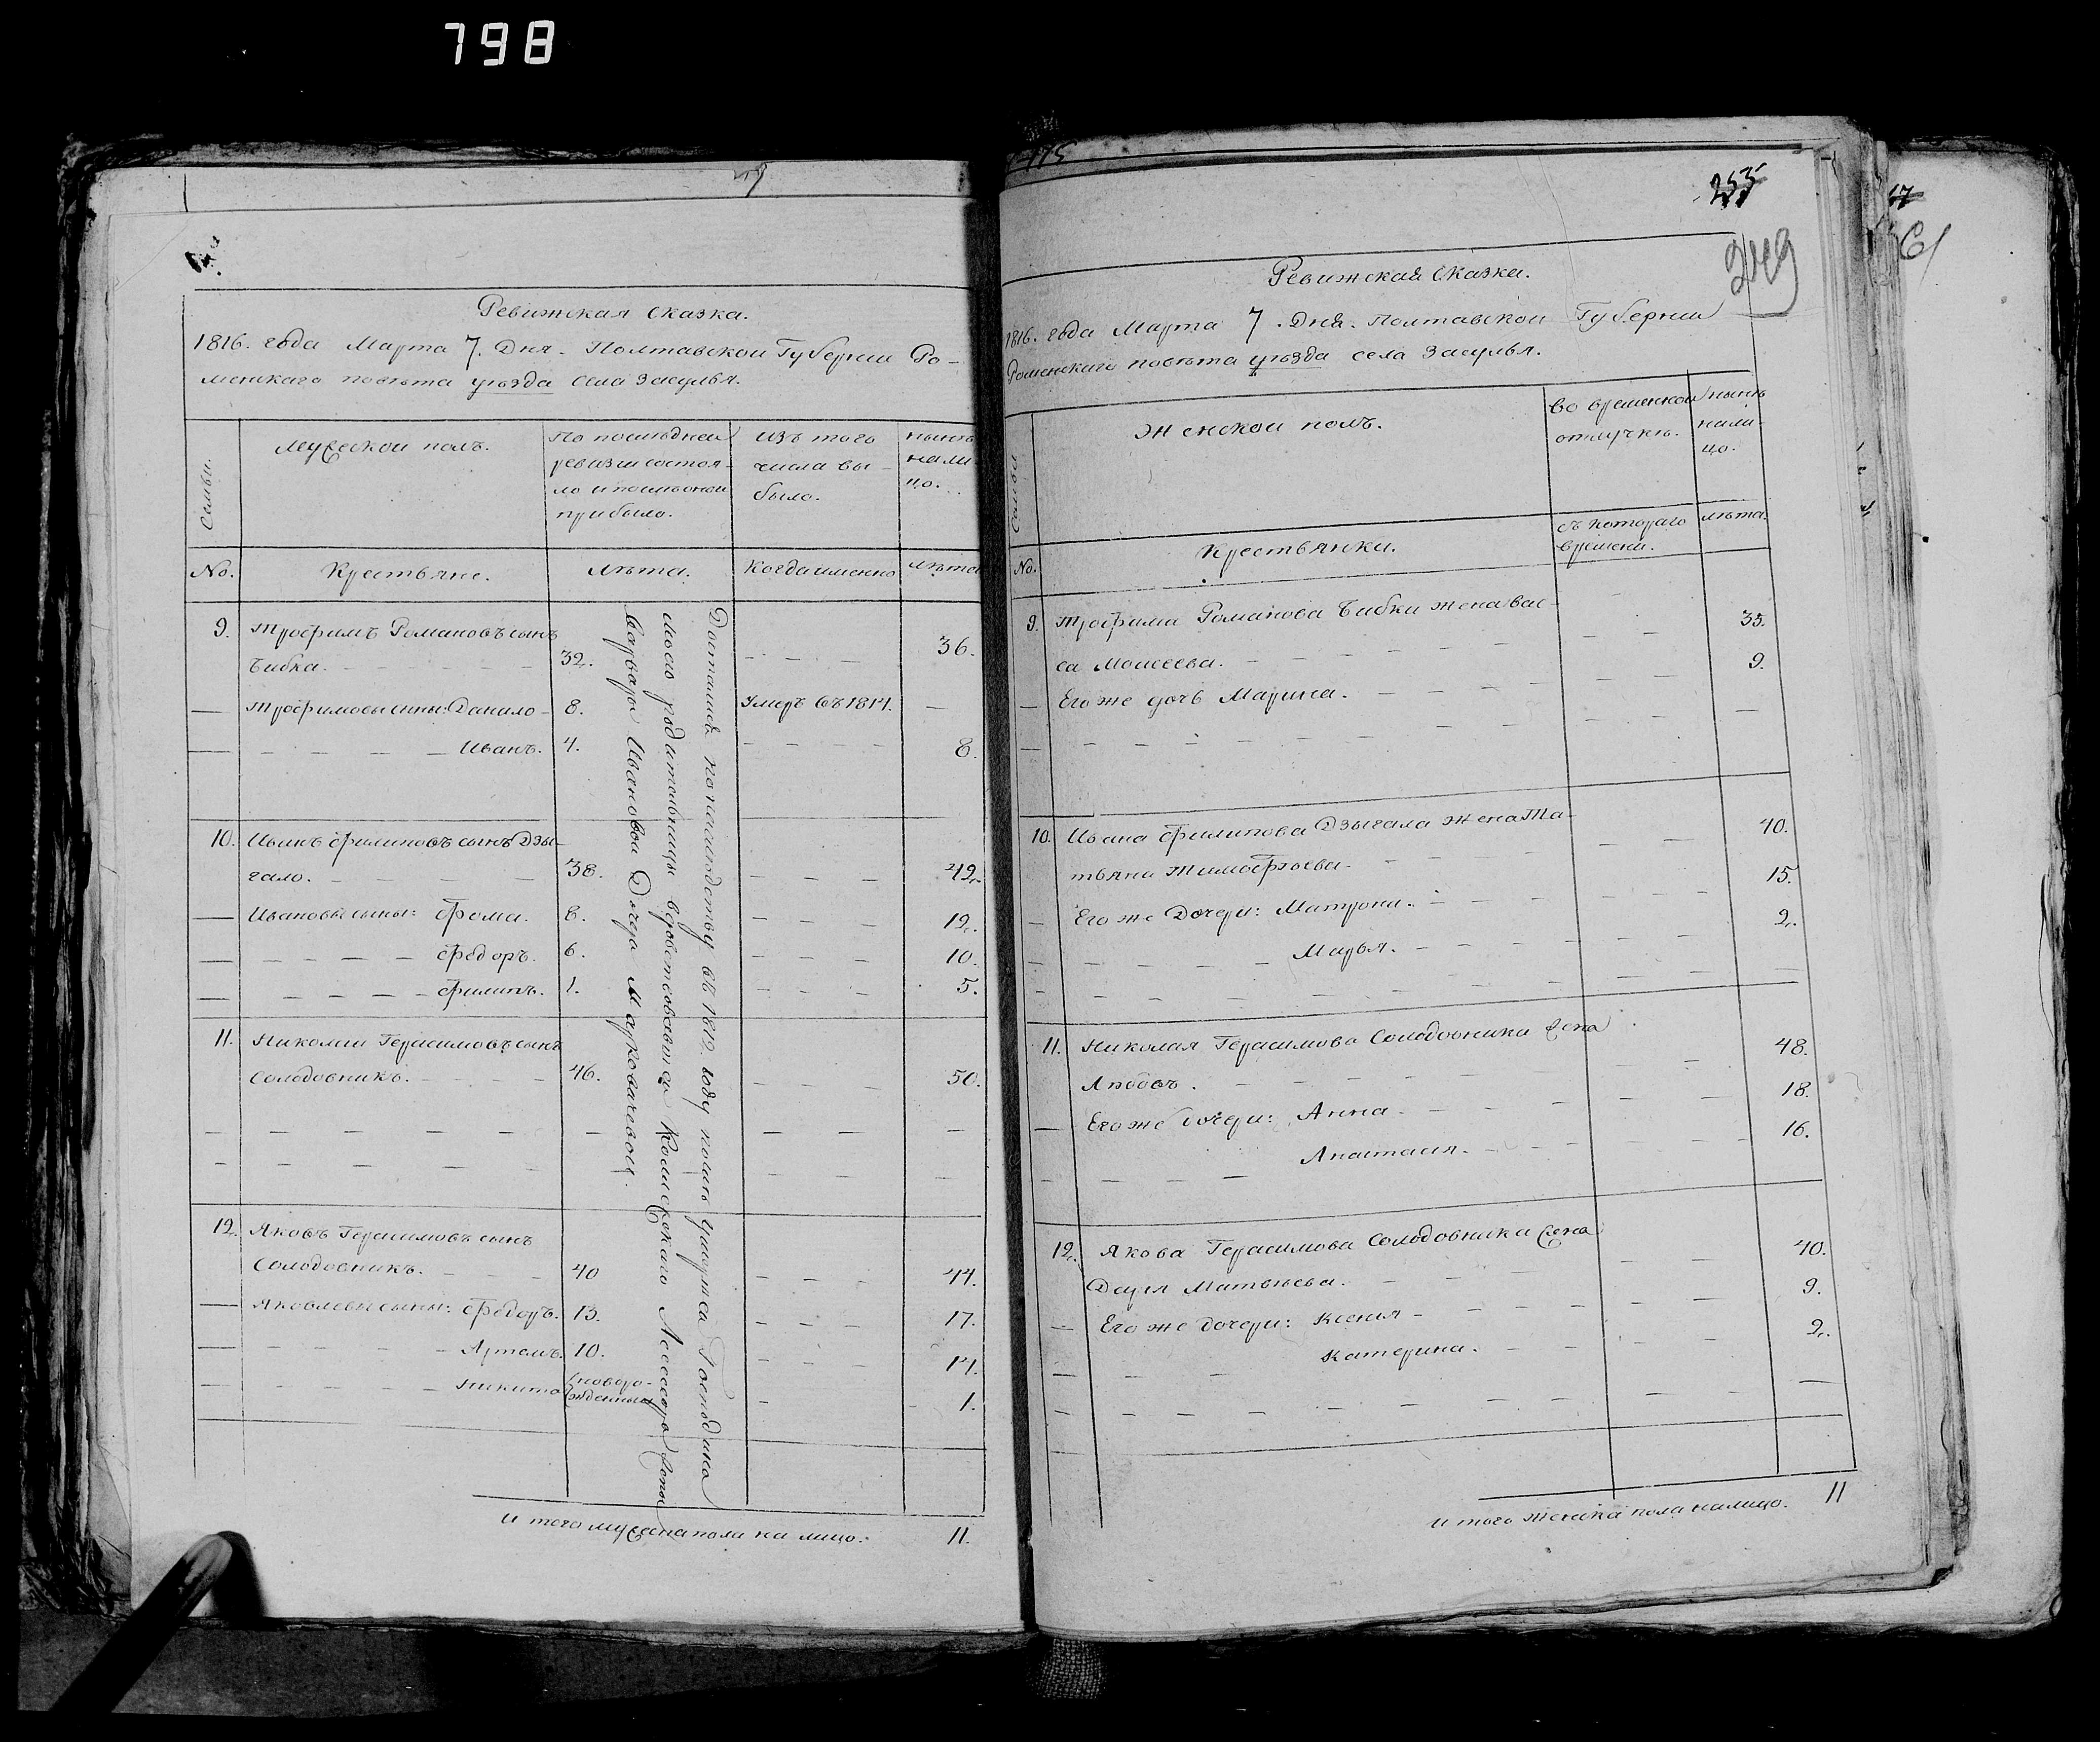 798
49
Ревижская Сказка.
1816. года Марта 7. Дня. Полтавской Губернии Ро-
менскаго повѣта уѣзда села Засулья.
Семьи.
Мужеской полъ.
По последней
ревизии состоя-
ло и после оной
прибыло.
изъ того
числа вы-
было.
ныне
нали
цо.
No.
Крестьяне.
лѣта.
Когда именно
лѣта
9. Трофимъ Романовъ сынъ
Чибка. 32. 36.
Трофимовы сыны: Данило 8. Умеръ въ 1814.
Иванъ. 4. 8.
10. Иванъ Филиповъ сынъ Дзы-
гало. 38. 42.
Ивановы сыны: Фома. 8. 12.
Федоръ. 6. 10.
Филипъ. 1. 5.
11. Николай Герасимовъ сынъ
Солодовникъ. 46. 50.
12. Яковъ Герасимовъ сынъ
Солодовникъ. 40 44.
Яковлевы сыны: Федоръ. 13. 17.
Артемъ. 10. 14.
Никита новоро-
жденный 1.
Достались по наследству въ 1812 году после умерша Господина
моего родительницы вдовствовавшей Коллежскаго Ассессора жены
Варвары Ивановой Дочери Марковичевой.
И того мужеска пола на лицо. 11.
175
255
249
Ревижская Сказка.
1816. года Марта 7. Дня. Полтавской Губернии
Роменскаго повѣта уѣзда села Засулья.
Семьи
Женской полъ.
Во временной
отлучке.
ныне
нали-
цо.
No.
Крестьянки.
съ котораго
времени.
лѣта.
9. Трофима Романова Чибки жена Вас-
са Моисеева. 35.
Его же дочь Марина. 9.
10. Ивана Филипова Дзыгала жена Та-
тьяна Тимофеева. 40.
Его же Дочери: Матрона. 15.
Марья. 2.
11. Николая Герасимова Солодовника жена
Любовь. 48.
Его же дочери: Анна. 18.
Анастасия. 16.
12. Якова Герасимова Солодовника жена
Дарья Матвеева. 40.
Его же дочери: Ксения 9.
Катерина. 2.
И того женска пола налицо. 11
17
61